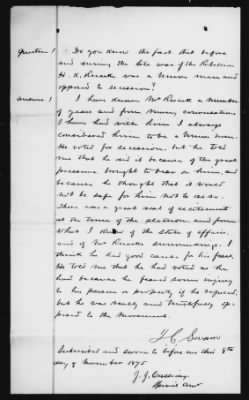 Question 1 Do you know the fact that before
and during the late war of the Rebellion
H. K. was a Union man and
opposed to secession?
Answer 1 I have known Mr a number
of years and from many conversations
I have had with him I always
considered him to be a Union man.
He voted for secession but he told
me that he did it because of the great
pressure brought to bear on him, and
because he thought that it would
not be safe for him not to do so.
There was a great deal of excitement
at the time of the election and from
what I knew of the state of affairs,
and of Mr surroundings I
think he had good cause for his fears.
He told me that he had voted as he
had because he feared some injury
to his person or property if he refused,
but he was really and truthfully op-
posed to the movement.
Subscribed and sworn to before me this 8th
day of November 1875
J. J.
Special